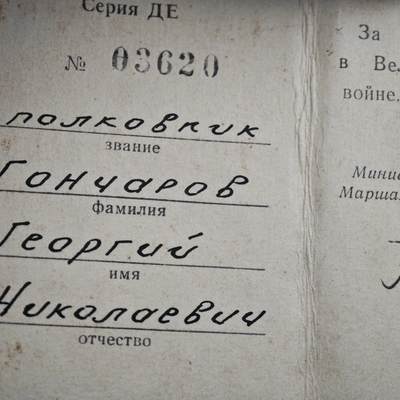 Серия ДЕ
№ 03620
полковник
звание
Гончаров
фамилия
Георгий
имя
Николаевич
отчество
За
в
войне.